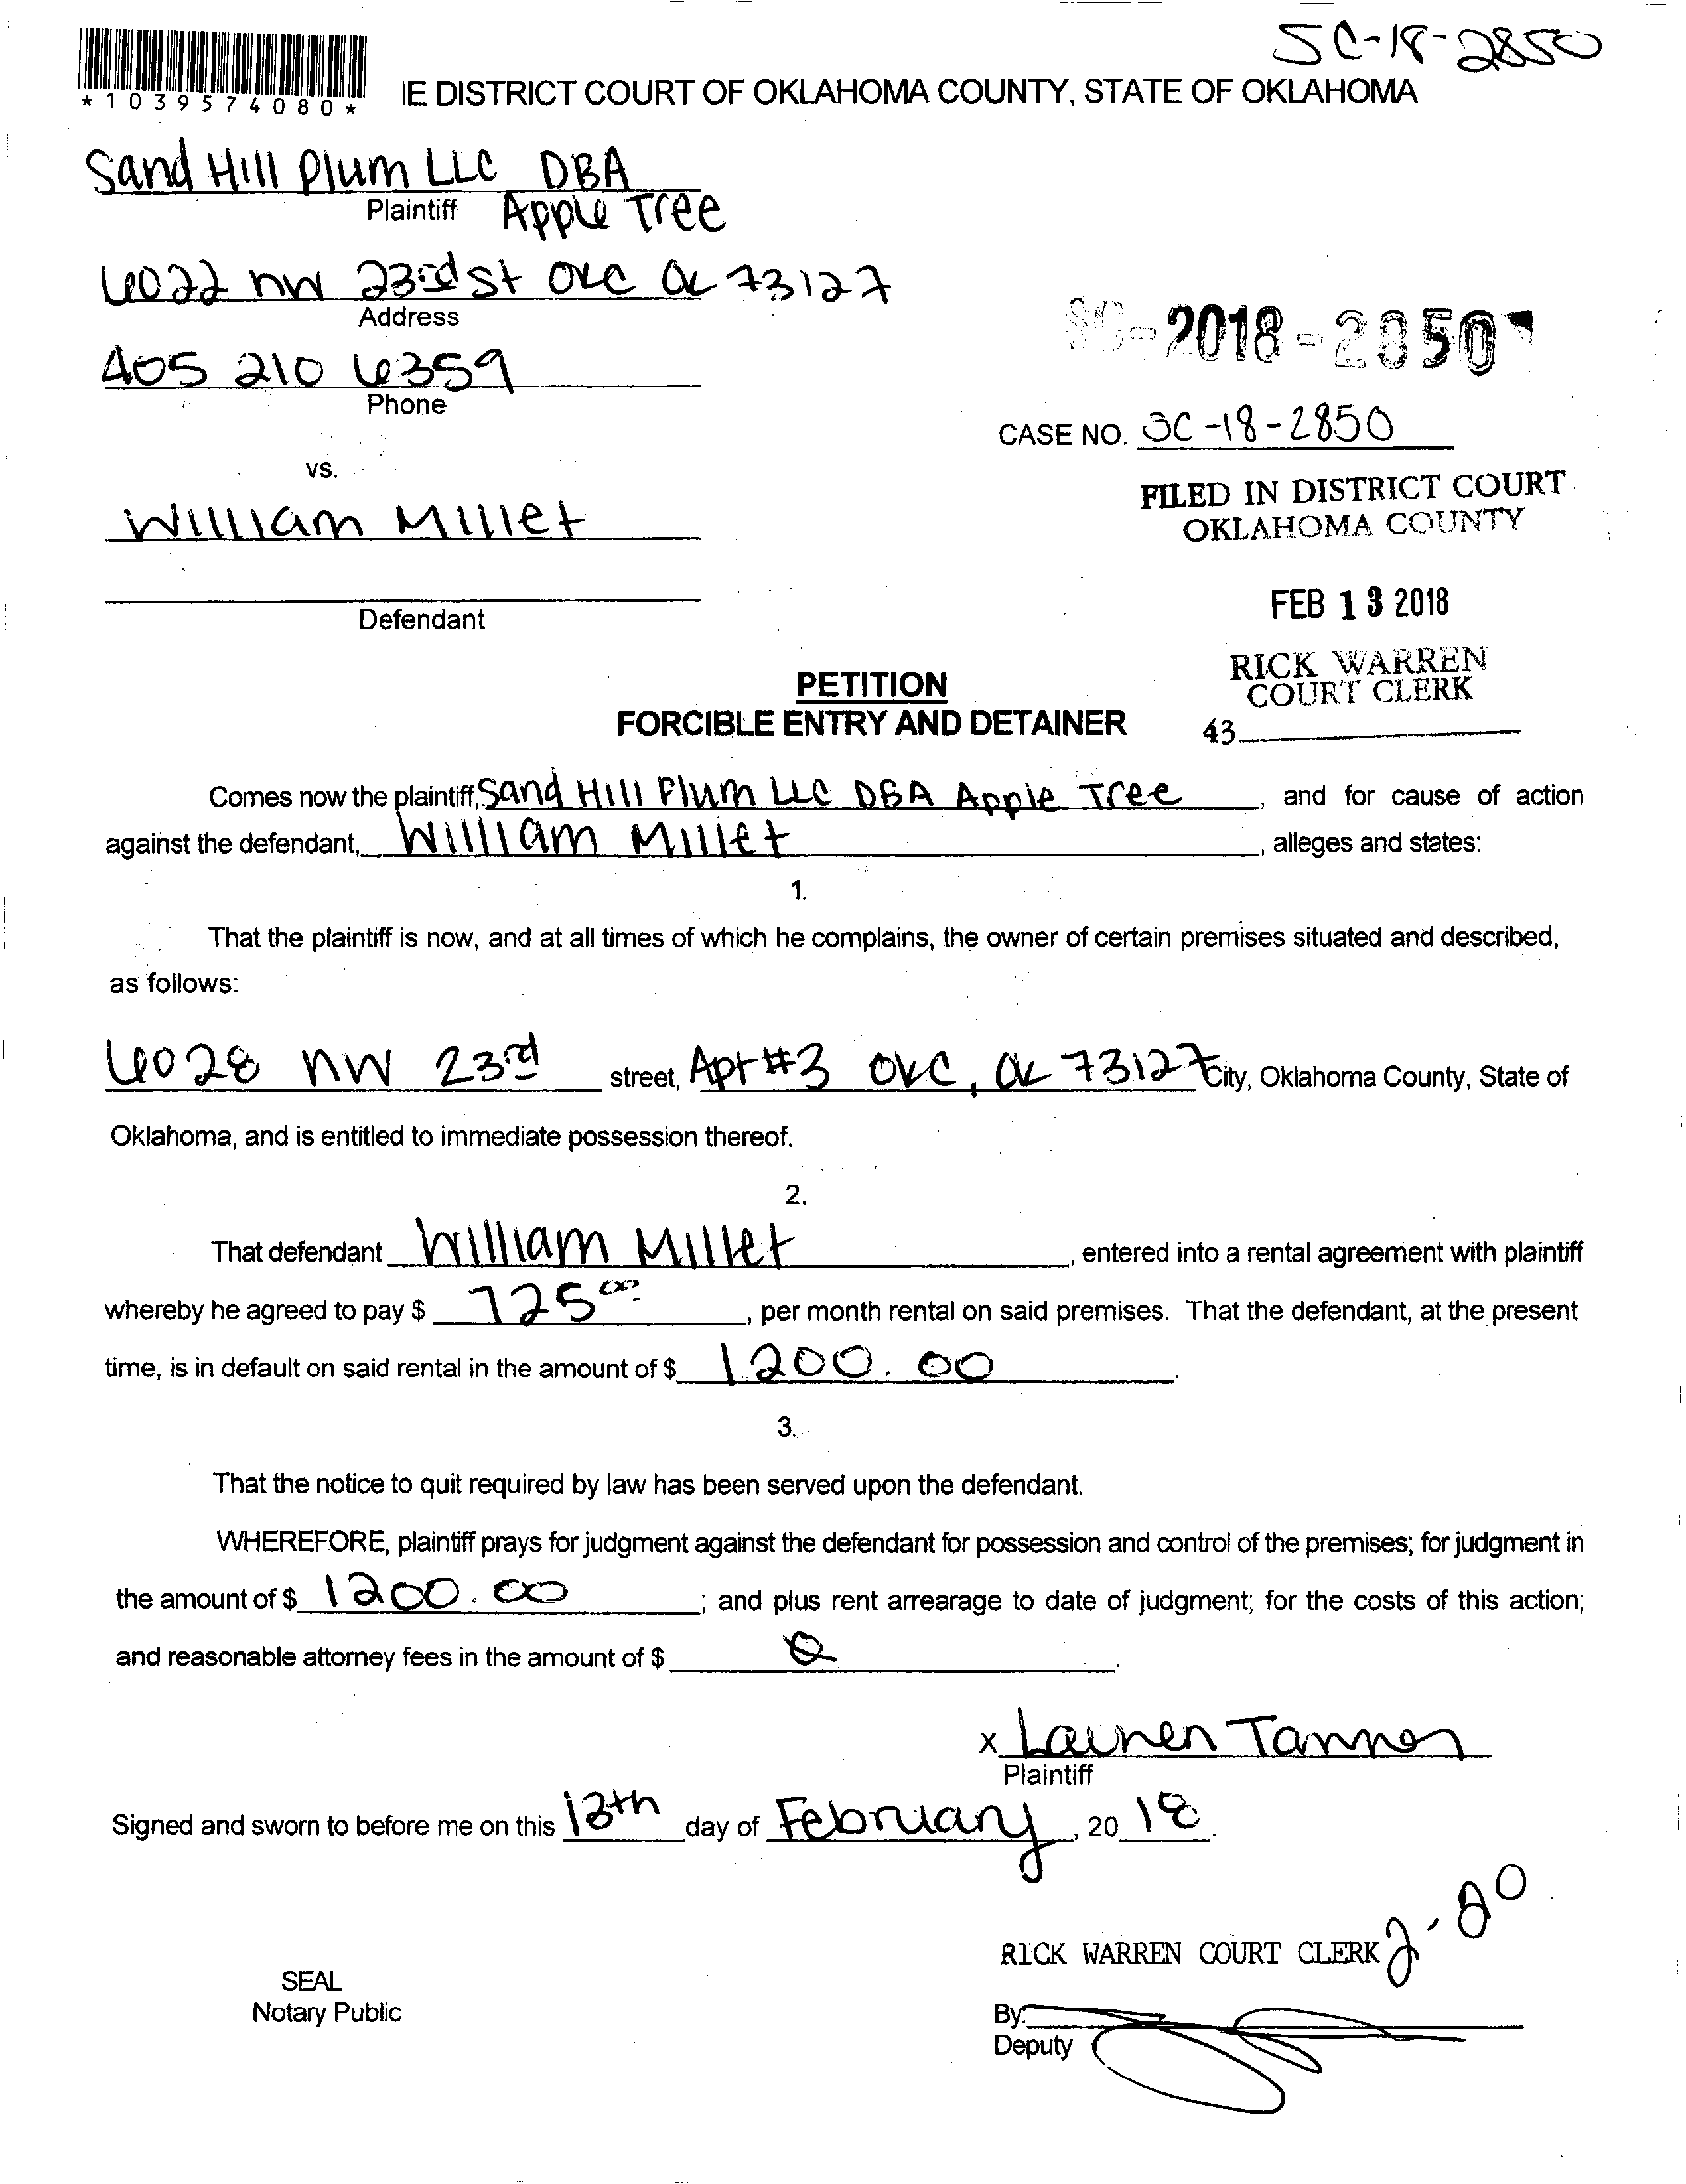 SC-18-2850
*1039574080*
IE DISTRICT COURT OF OKLAHOMA COUNTY, STATE OF OKLAHOMA
Sand Hill Plum LLC DBA
Plaintiff Apple Tree
6022 NW 23rd St OKC OK 73127
Address
405 210 6359
Phone
SC-2018-2850
CASE NO. SC-18-2850
vs.
William Millet
FILED IN DISTRICT COURT
OKLAHOMA COUNTY
Defendant
FEB 13 2018
RICK WARREN
COURT CLERK
43
PETITION
FORCIBLE ENTRY AND DETAINER
Comes now the plaintiff, Sand Hill Plum LLC DBA Apple Tree, and for cause of action
against the defendant, William Millet, alleges and states:
1.
That the plaintiff is now, and at all times of which he complains, the owner of certain premises situated and described,
as follows:
6028 NW 23rd street, Apt #3 OKC, OK 73127 City, Oklahoma County, State of
Oklahoma, and is entitled to immediate possession thereof.
2.
That defendant William Millet, entered into a rental agreement with plaintiff
whereby he agreed to pay $ 725.00, per month rental on said premises. That the defendant, at the present
time, is in default on said rental in the amount of $ 1200.00.
3.
That the notice to quit required by law has been served upon the defendant.
WHEREFORE, plaintiff prays for judgment against the defendant for possession and control of the premises; for judgment in
the amount of $ 1200.00; and plus rent arrearage to date of judgment; for the costs of this action;
and reasonable attorney fees in the amount of $ 0.
x Lauren Tanner
Plaintiff
Signed and sworn to before me on this 13th day of February, 20 18.
RICK WARREN COURT CLERK
SEAL
Notary Public
By:
Deputy